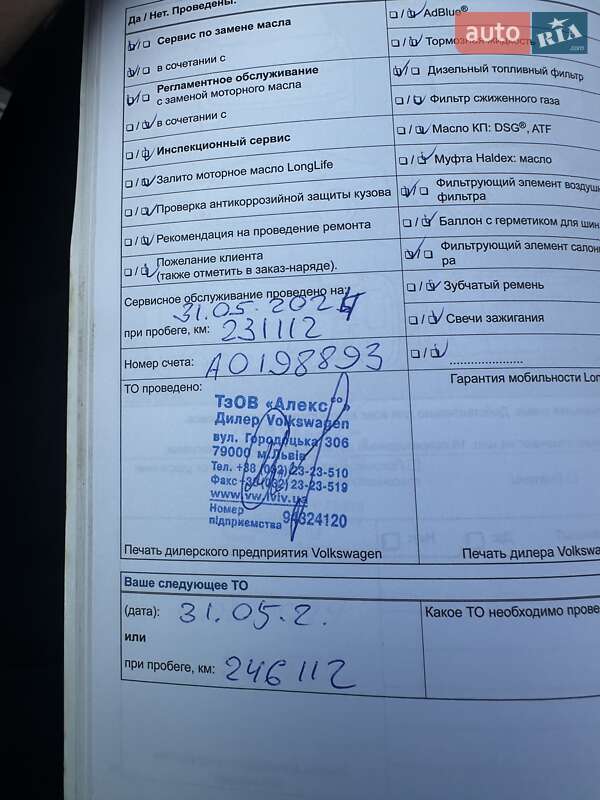 Да / Нет. Проведены:
Сервис по замене масла
в сочетании с
Регламентное обслуживание
с заменой моторного масла
в сочетании с
Инспекционный сервис
Залито моторное масло LongLife
Проверка антикоррозийной защиты кузова
Рекомендация на проведение ремонта
Пожелание клиента
(также отметить в заказ-наряде).
AdBlue®
Тормозная жидкость
Дизельный топливный фильтр
Фильтр сжиженного газа
Масло КП: DSG®, ATF
Муфта Haldex: масло
Фильтрующий элемент воздуш
фильтра
Баллон с герметиком для шин
Фильтрующий элемент салон
ра
Зубчатый ремень
Свечи зажигания
......................
Сервисное обслуживание проведено на:
31.05.2024
при пробеге, км: 231112
Номер счета: АО198893
ТО проведено:
Гарантия мобильности Lon
ТзОВ «Алекс
Дилер Volkswagen
вул. Городоцька 306
79000 м.Львів
Тел. +38 (032) 23-23-510
Факс +38 (032) 23-23-519
www.vw.lviv.ua
Номер
підприємства 94324120
Печать дилерского предприятия Volkswagen
Печать дилера Volkswa
Ваше следующее ТО
(дата): 31.05.2.
или
при пробеге, км: 246112
Какое ТО необходимо прове
auto RIA
.com